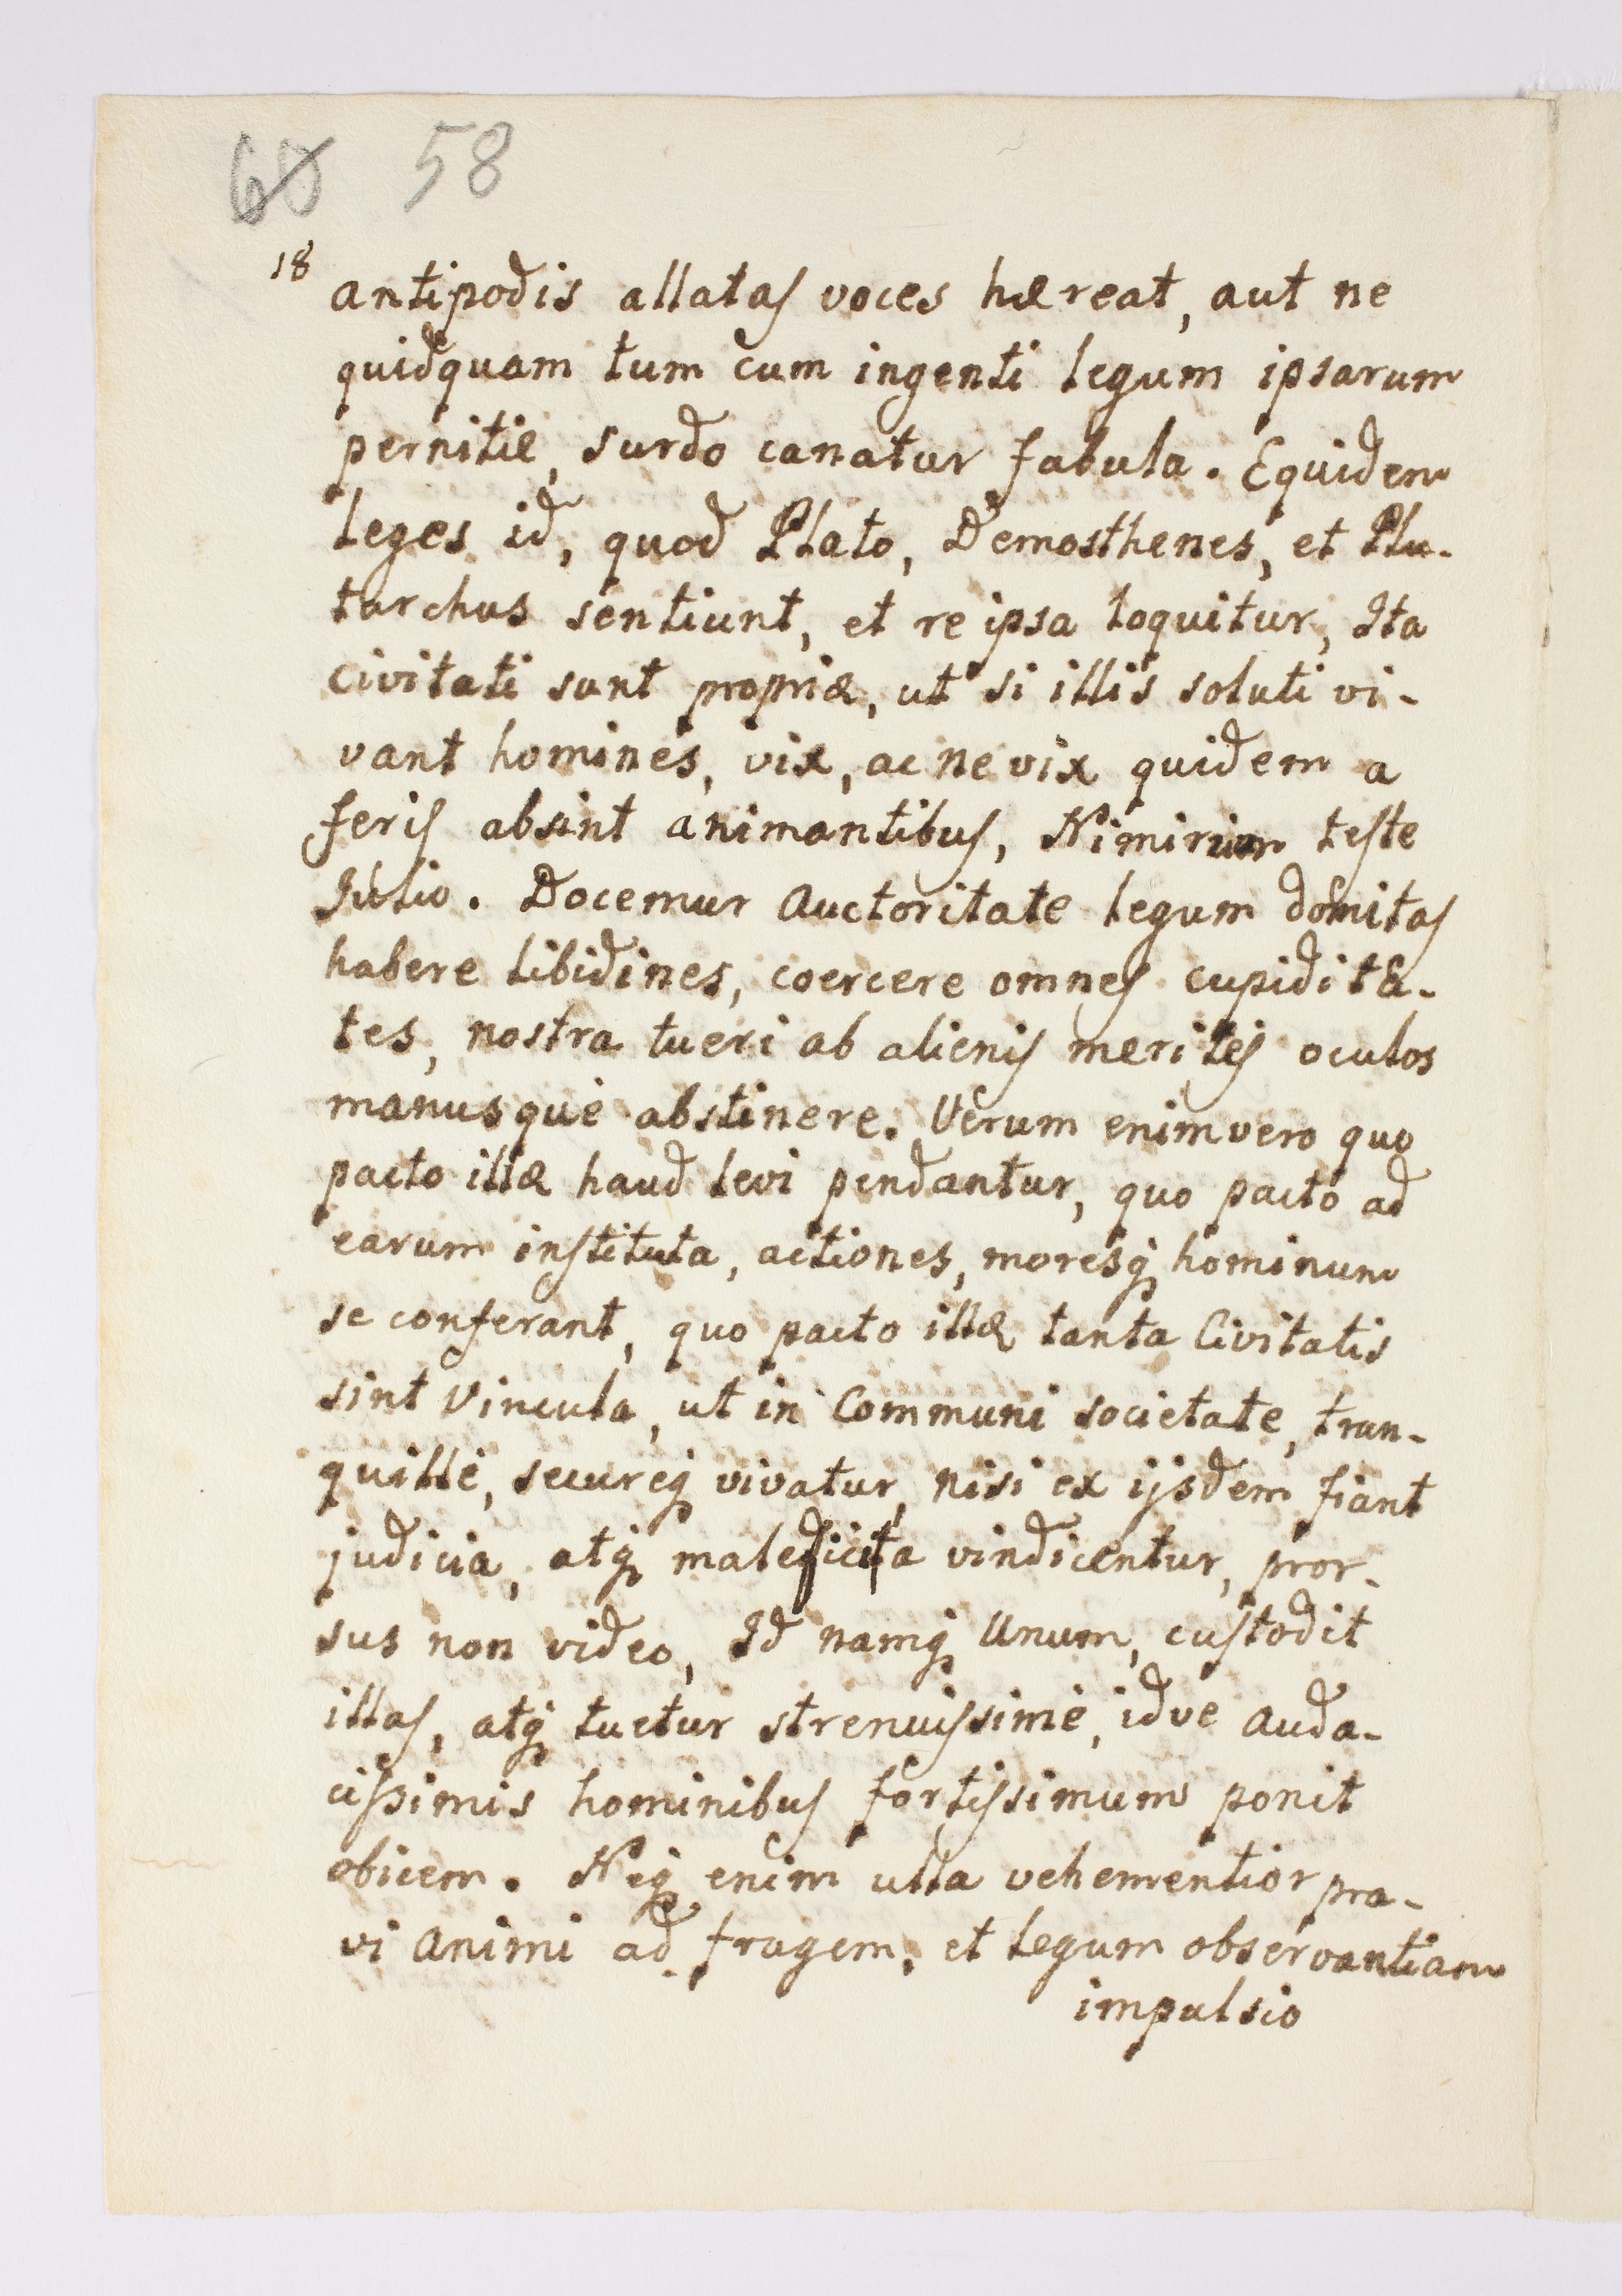 60 58
18
antipodis allatas voces hæreat, aut ne
quidquam tum cum ingenti legum ipsarum
pernitie, surdo canatur fabula. Equidem
leges id, quod Plato, Demosthenes, et Plu-
tarchus sentiunt, et re ipsa loquitur, Ita
civitati sunt propriæ, ut si illis soluti vi-
vant homines, vix, ac ne vix quidem a
feris absint animantibus, Nimirum teste
Julio. Docemur Auctoritate legum domitas
habere libidines, coercere omnes cupidita-
tes, nostra tueri ab alienis meritis oculos
manusque abstinere. Verum enimvero quo
pacto illæ haud levi pendantur, quo pacto ad
earum instituta, actiones, moresq hominum
se conferant, quo pacto illæ tanta Civitatis
sint Vincula, ut in Communi societate, tran-
quillè, secureq vivatur, nisi ex ijsdem fiant
judicia, atq maleficita vindicentur, pror-
sus non video, Id namq Unum, custodit
illas, atq tuetur strenuissimè, idve auda-
cissimis hominibus fortissimum ponit
obicem. Neq enim ulla vehementior pra-
vi animi ad frugem, et legum observantiam
impulsio